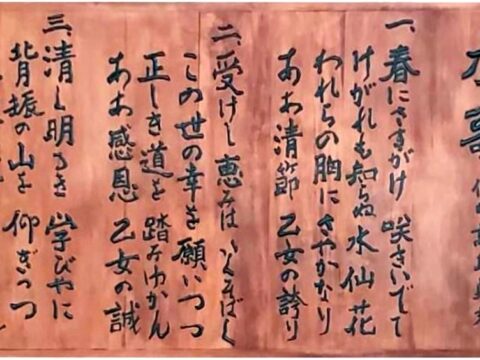 一、春にさきがけ 咲きいでて
けがれも知らぬ 水仙花
われらの胸に さやかなり
ああ清節 乙女の誇り
二、受けし恵みは いくそばく
この世の幸を 願いつつ
正しき道を 踏みゆかん
ああ感恩 乙女の誠
三、清く明るき 学びやに
背振の山を 仰ぎつつ